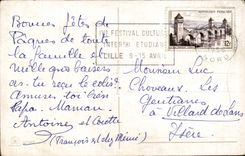 Bonnes fêtes de
Pâques de toute
la famille et
mille gros baisers
as-tu reçu le colis
amuses toi bien
Papa. Maman.
Antoine et Colette
(François et chez Mémé)
FESTIVAL CULTUREL
INTERN ETUDIANT
LILLE 9-15 AVRIL
NORD
12F
Monsieur Luc
Chovaux. Les
Gentianes
à Villard de Lans
Isère